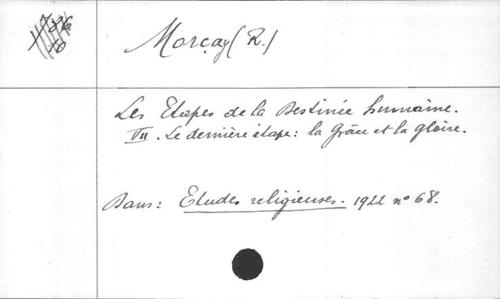 Morçay (R.)
Les Etapes de la Destinée humaine.
VII. Le dernière étape: la Grâce et la gloire.
Dans: Etudes religieuses. 1922 nº 68.